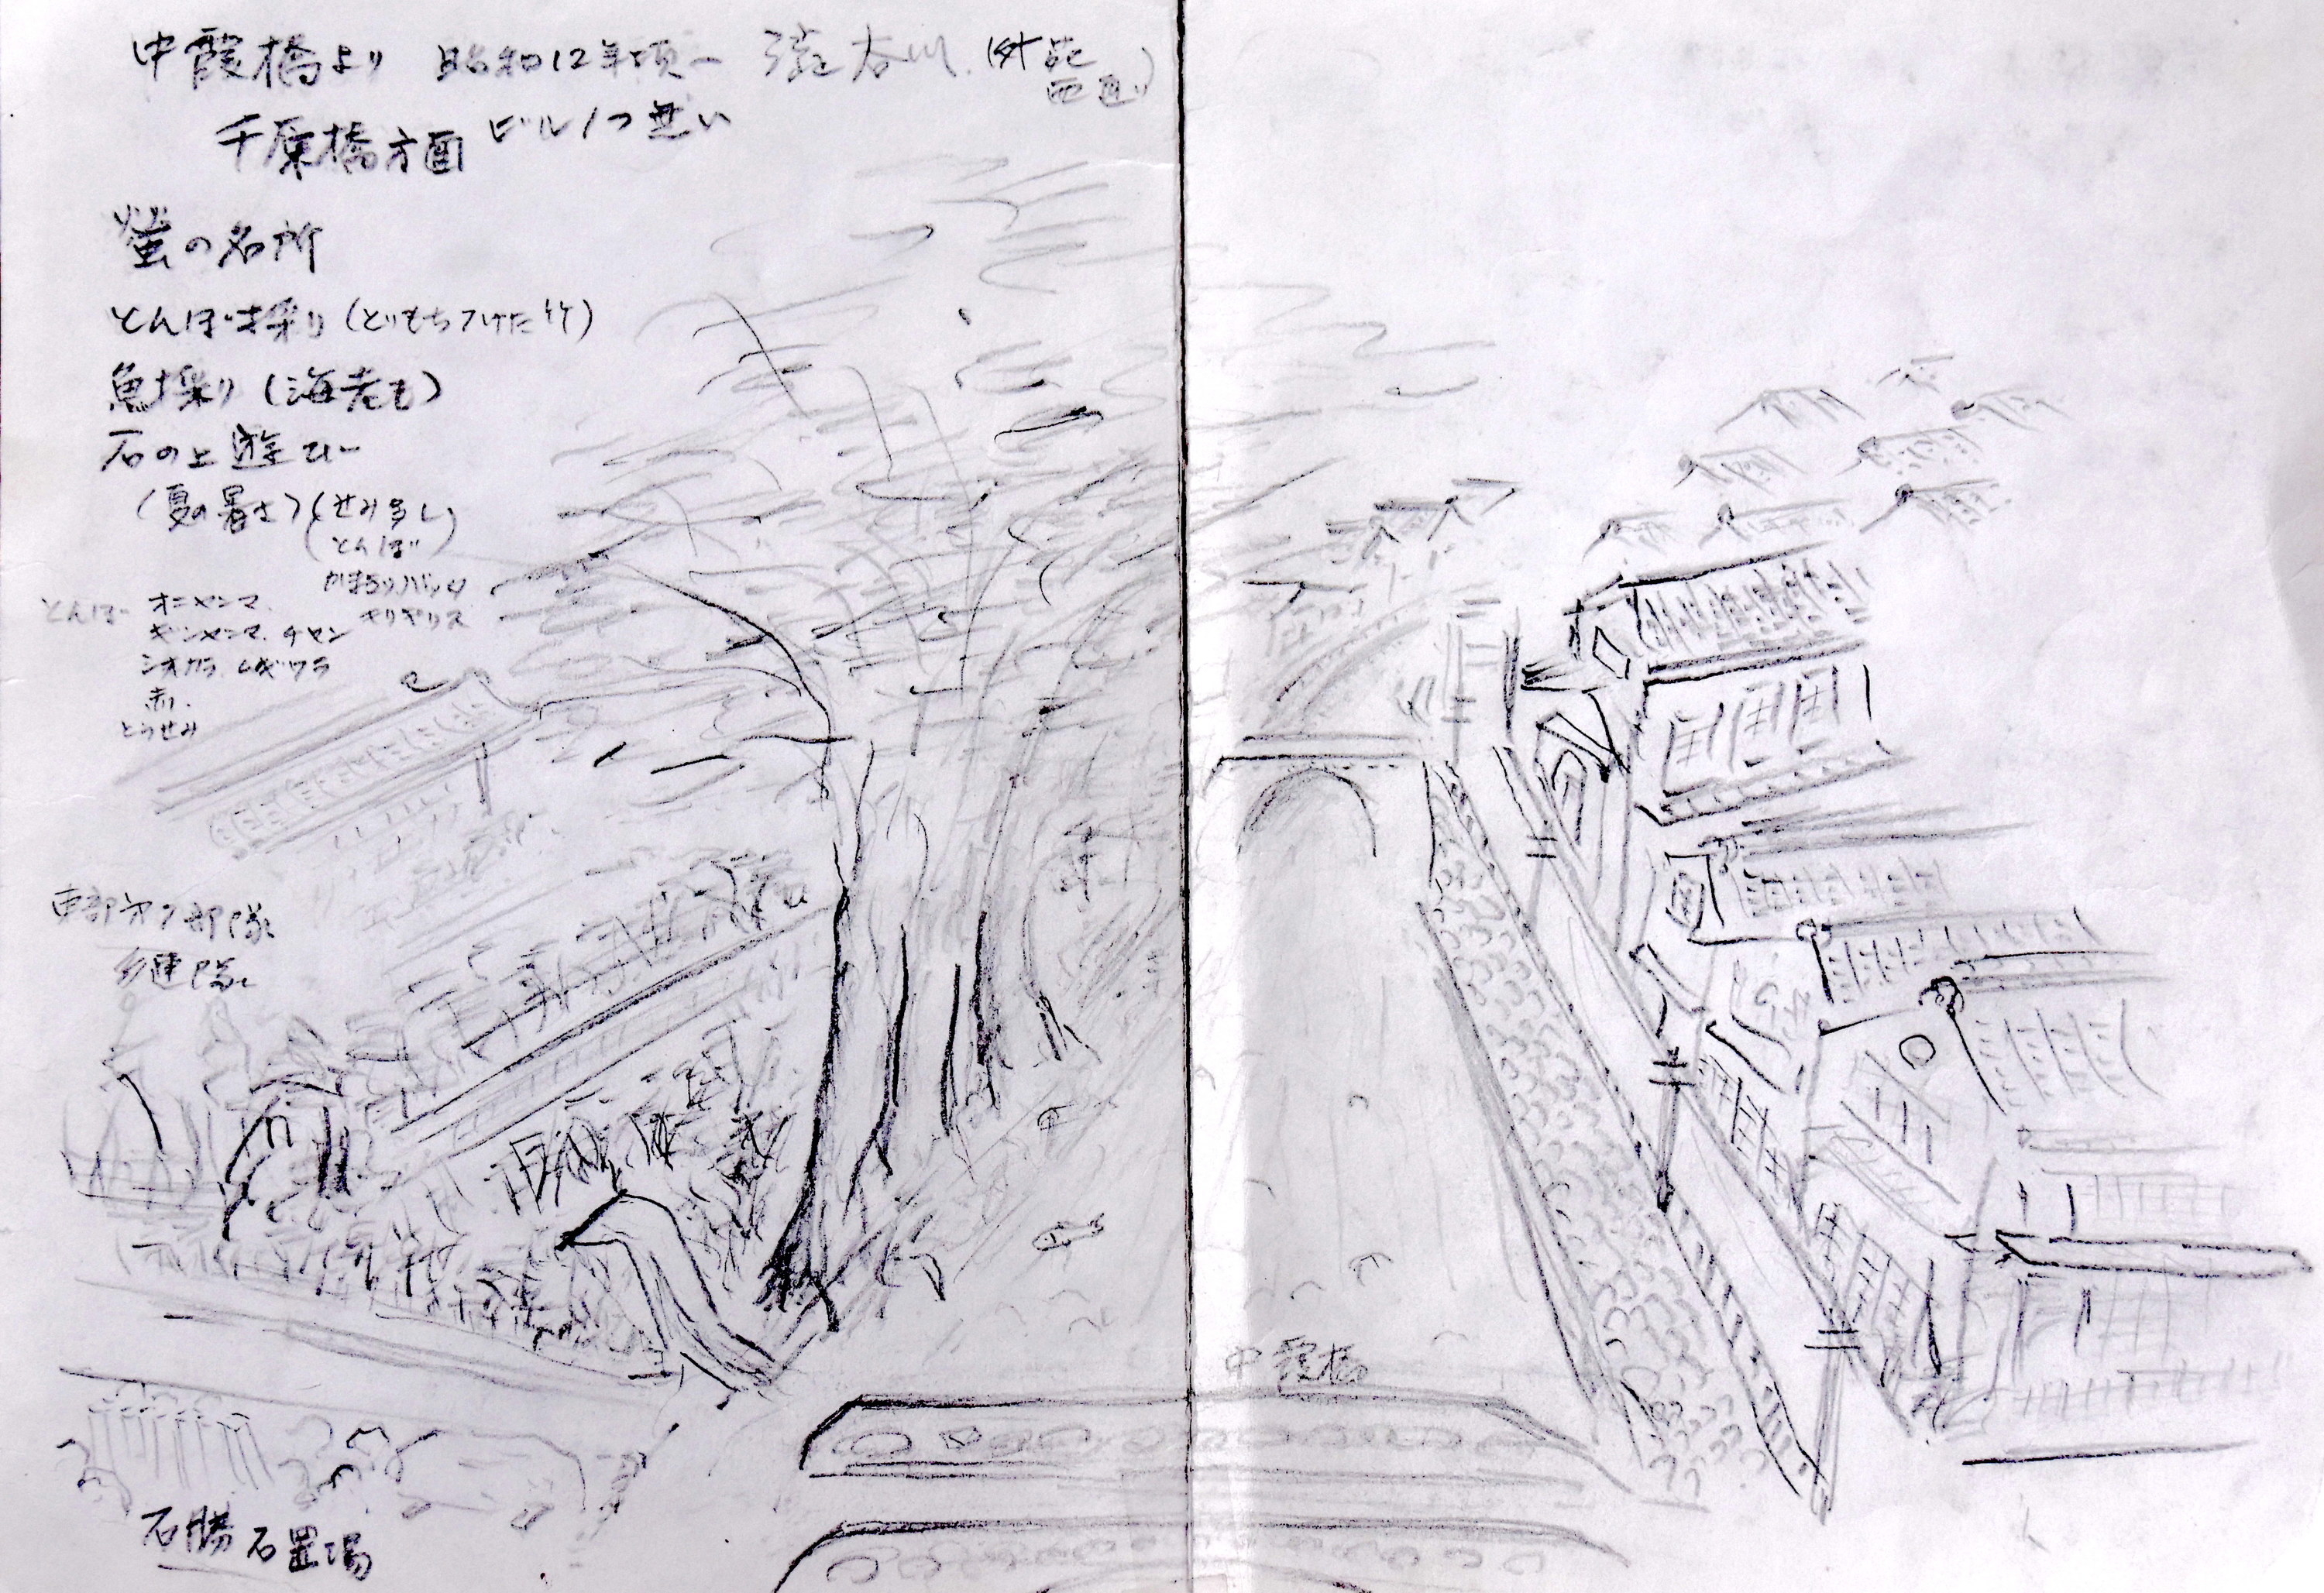 中霞橋より 昭和12年頃 渋谷川(外苑
西通り)
千原橋方面 ビル1つ無い
螢の名所
とんぼ採り(とりもちつけた竹)
魚採り(海老も)
石の上遊び
(夏の暑さ)(せみ多し)
(とんぼ)
キリギリス
とんぼ オニヤンマ
ギンヤンマ チャン
シオカラ ムギワラ
赤
部隊
連隊
中霞橋
石勝 石置場